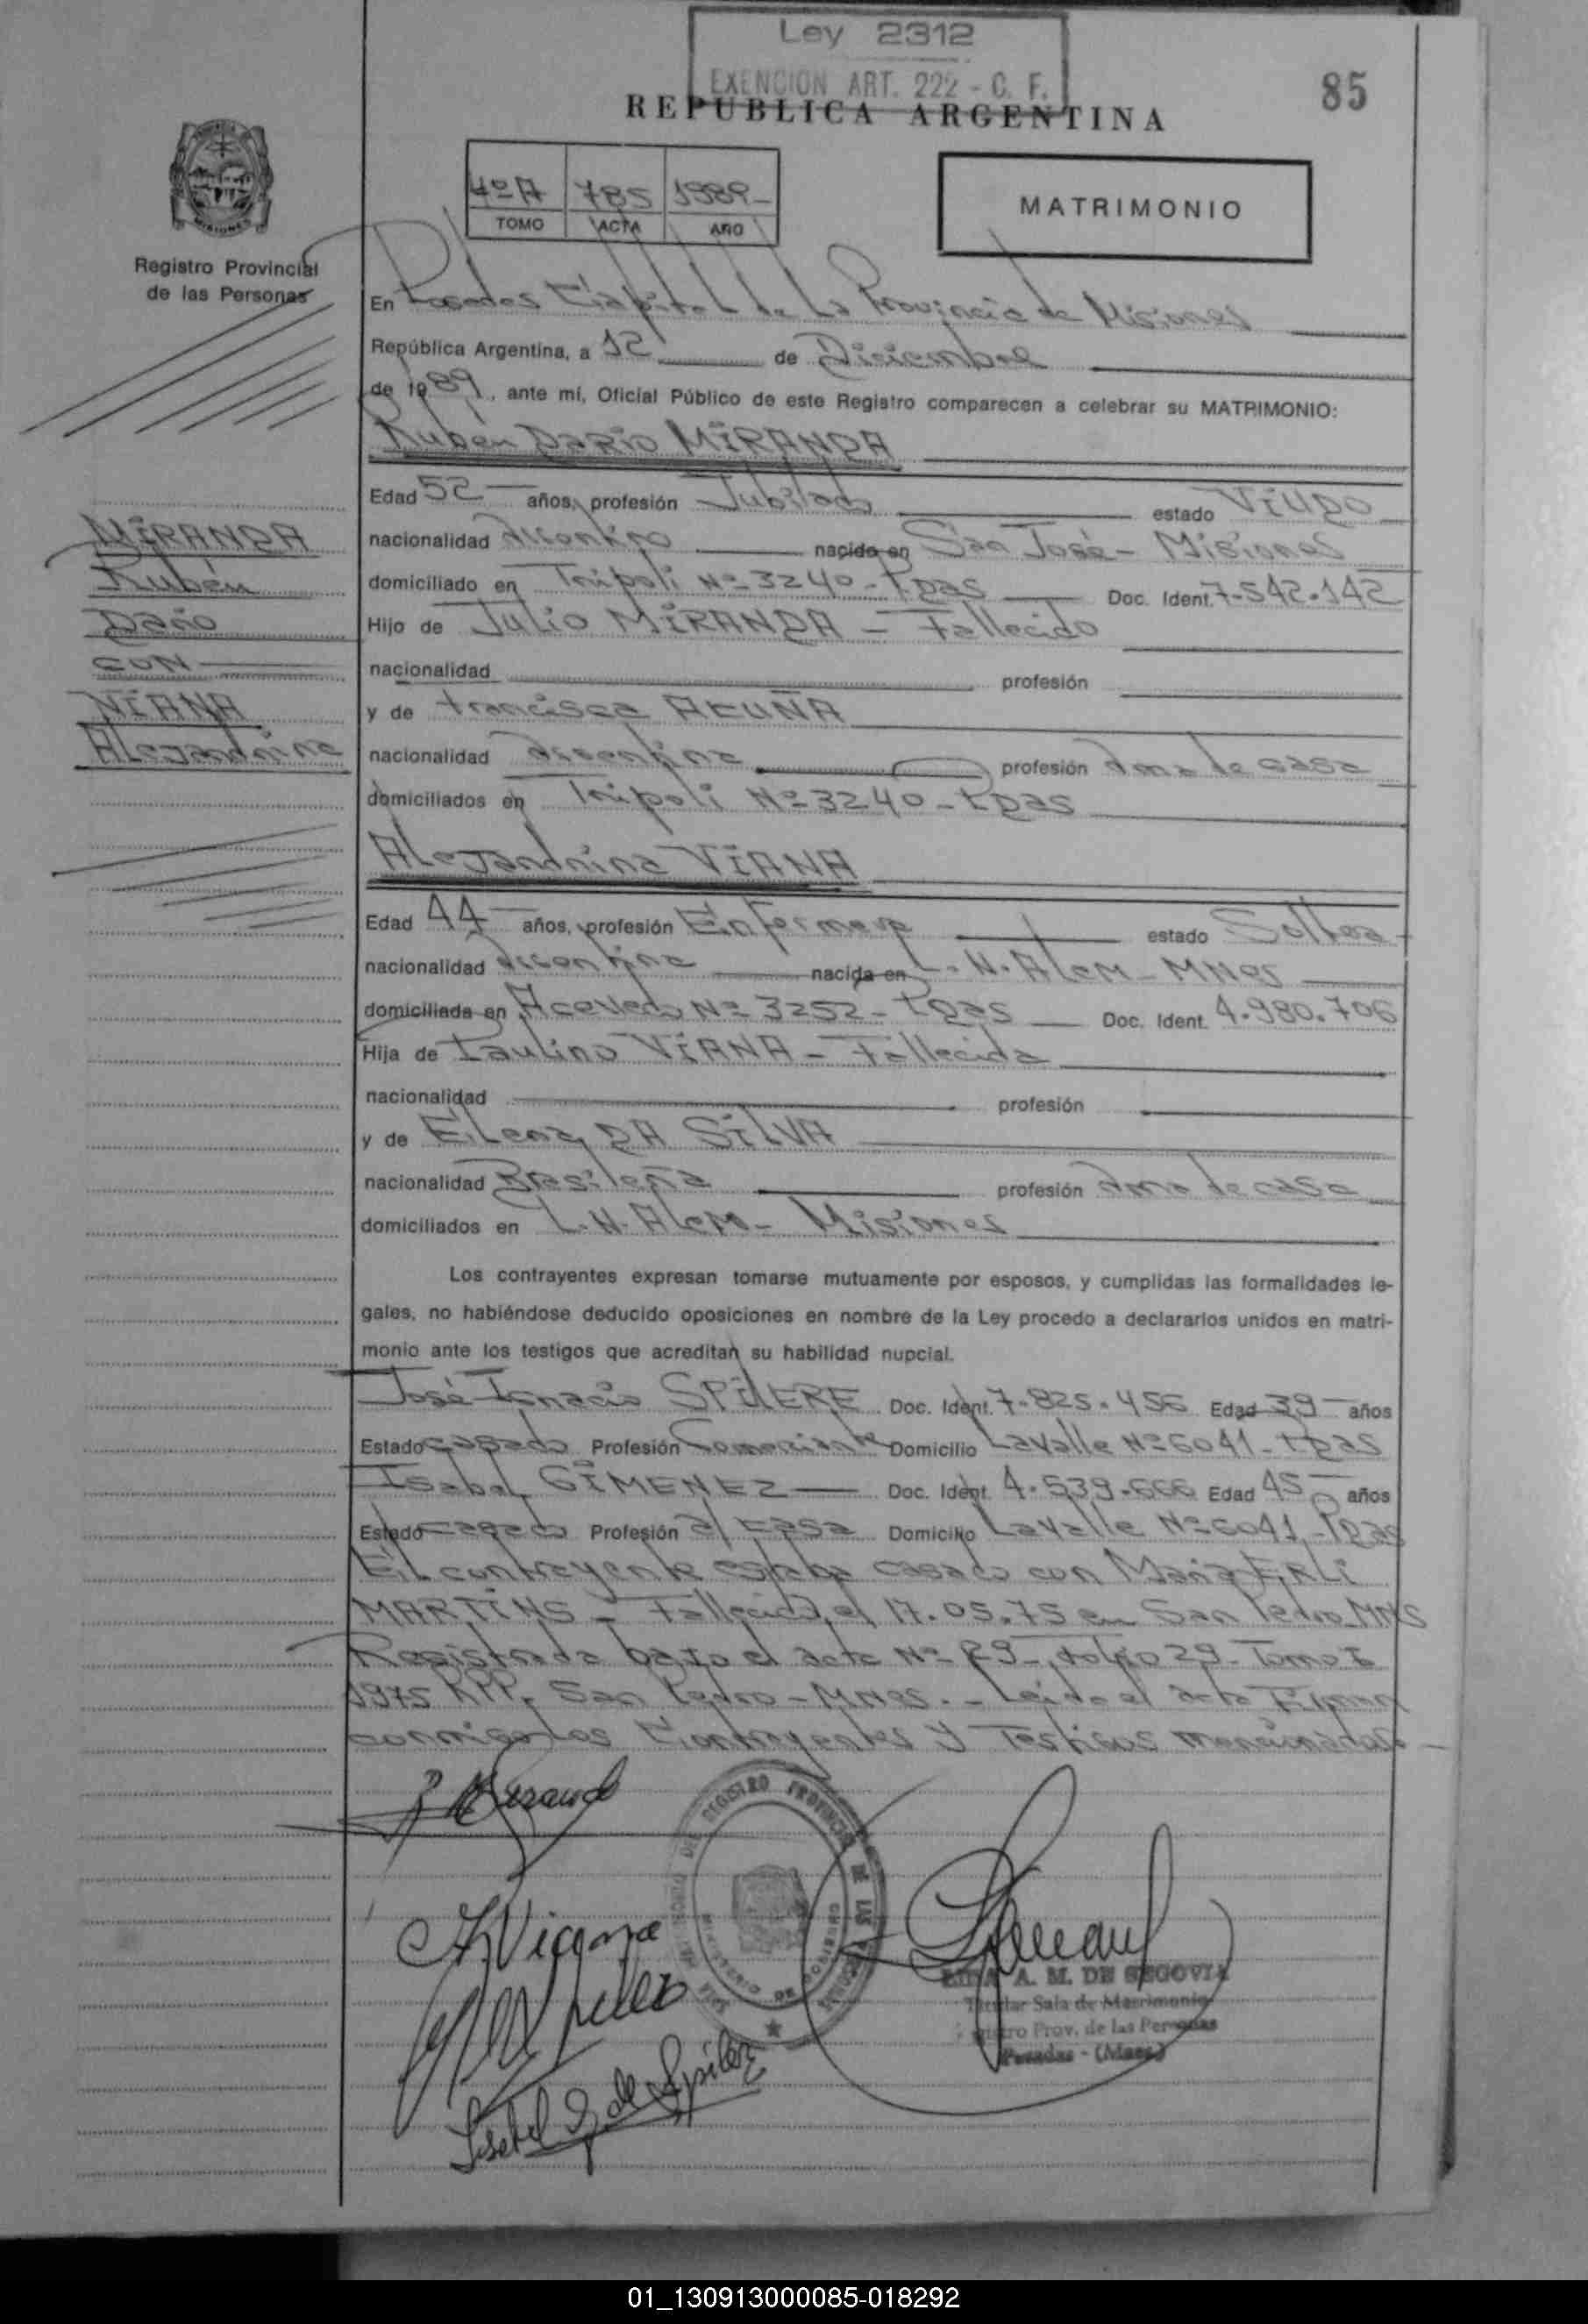 Ley 2312
EXENCION ART. 222 - C. F.
85
REPUBLICA ARGENTINA
4º A 785 1989-
TOMO ACTA AÑO
MATRIMONIO
Registro Provincial
de las Personas
En Posadas Capital de La Provincia de Misiones
República Argentina, a 12 de Diciembre
de 1989, ante mí, Oficial Público de este Registro comparecen a celebrar su MATRIMONIO:
Rubén Darío MIRANDA
Edad 52 años, profesión Jubilado estado Viudo
nacionalidad Argentino nacido en San José - Misiones
domiciliado en Tripoli Nº 3240 - Pdas Doc. Ident. 7.542.142
Hijo de Julio MIRANDA - Fallecido
nacionalidad profesión
y de Francisca ACUÑA
nacionalidad Argentina profesión Ama de casa
domiciliados en Tripoli Nº 3240 - Pdas
MIRANDA
Rubén
Darío
CON
VIANA
Alejandrina
Alejandrina VIANA
Edad 44 años, profesión Enfermera estado Soltera
nacionalidad Argentina nacida en L. N. Alem - Mnes
domiciliada en Acevedo Nº 3252 - Pdas Doc. Ident. 4.980.706
Hija de Paulino VIANA - Fallecida
nacionalidad profesión
y de Elena DA SILVA
nacionalidad Brasileña profesión Ama de casa
domiciliados en L. N. Alem - Misiones
Los contrayentes expresan tomarse mutuamente por esposos, y cumplidas las formalidades le-
gales, no habiéndose deducido oposiciones en nombre de la Ley procedo a declararlos unidos en matri-
monio ante los testigos que acreditan su habilidad nupcial.
José Ignacio SPILERE Doc. Ident. 7.825.456 Edad 39 años
Estado casado Profesión Comerciante Domicilio Lavalle Nº 6041 - Pdas
Isabel GIMENEZ Doc. Ident. 4.539.666 Edad 45 años
Estado casada Profesión a/ casa Domicilio Lavalle Nº 6041 - Pdas
El contrayente estaba casado con María ERLI
MARTINS - Fallecida el 17.05.75 en San Pedro Mnes
Registrada bajo el acta Nº 29 - folio 29 - Tomo I
1975 RPP. San Pedro - Mnes. - Leida el Acta Firman
conmigo los Contrayentes y Testigos mencionados. -
R Miranda
A Viana
Isabel G de Spilere
REGISTRO PROVINCIAL DE LAS PERSONAS
A. M. DE SEGOVIA
Titular Sala de Matrimonio
Registro Prov. de las Personas
Posadas - (Mnes.)
01_130913000085-018292